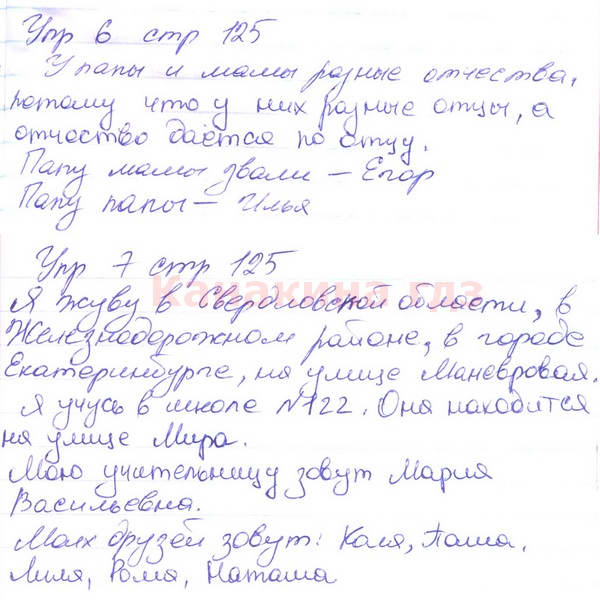 Упр 6 стр 125
У папы и мамы разные отчества,
потому что у них разные отцы, а
отчество даётся по отцу.
Папу мамы звали – Егор
Папу папы – Илья
Упр 7 стр 125
Канакина гдз
Я живу в Свердловской области, в
Железнодорожном районе, в городе
Екатеринбурге, на улице Маневровая.
Я учусь в школе №122. Она находится
на улице Мира.
Мою учительницу зовут Мария
Васильевна.
Моих друзей зовут: Коля, Паша,
Лиля, Рома, Наташа